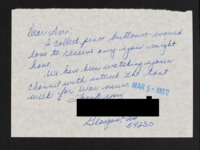 Dear Sirs:
I collect pins buttons would
love to receive any you might
have.
We have been watching your
channel with interest the last
week for
MAR 5 - REC'D
Thank you
59230